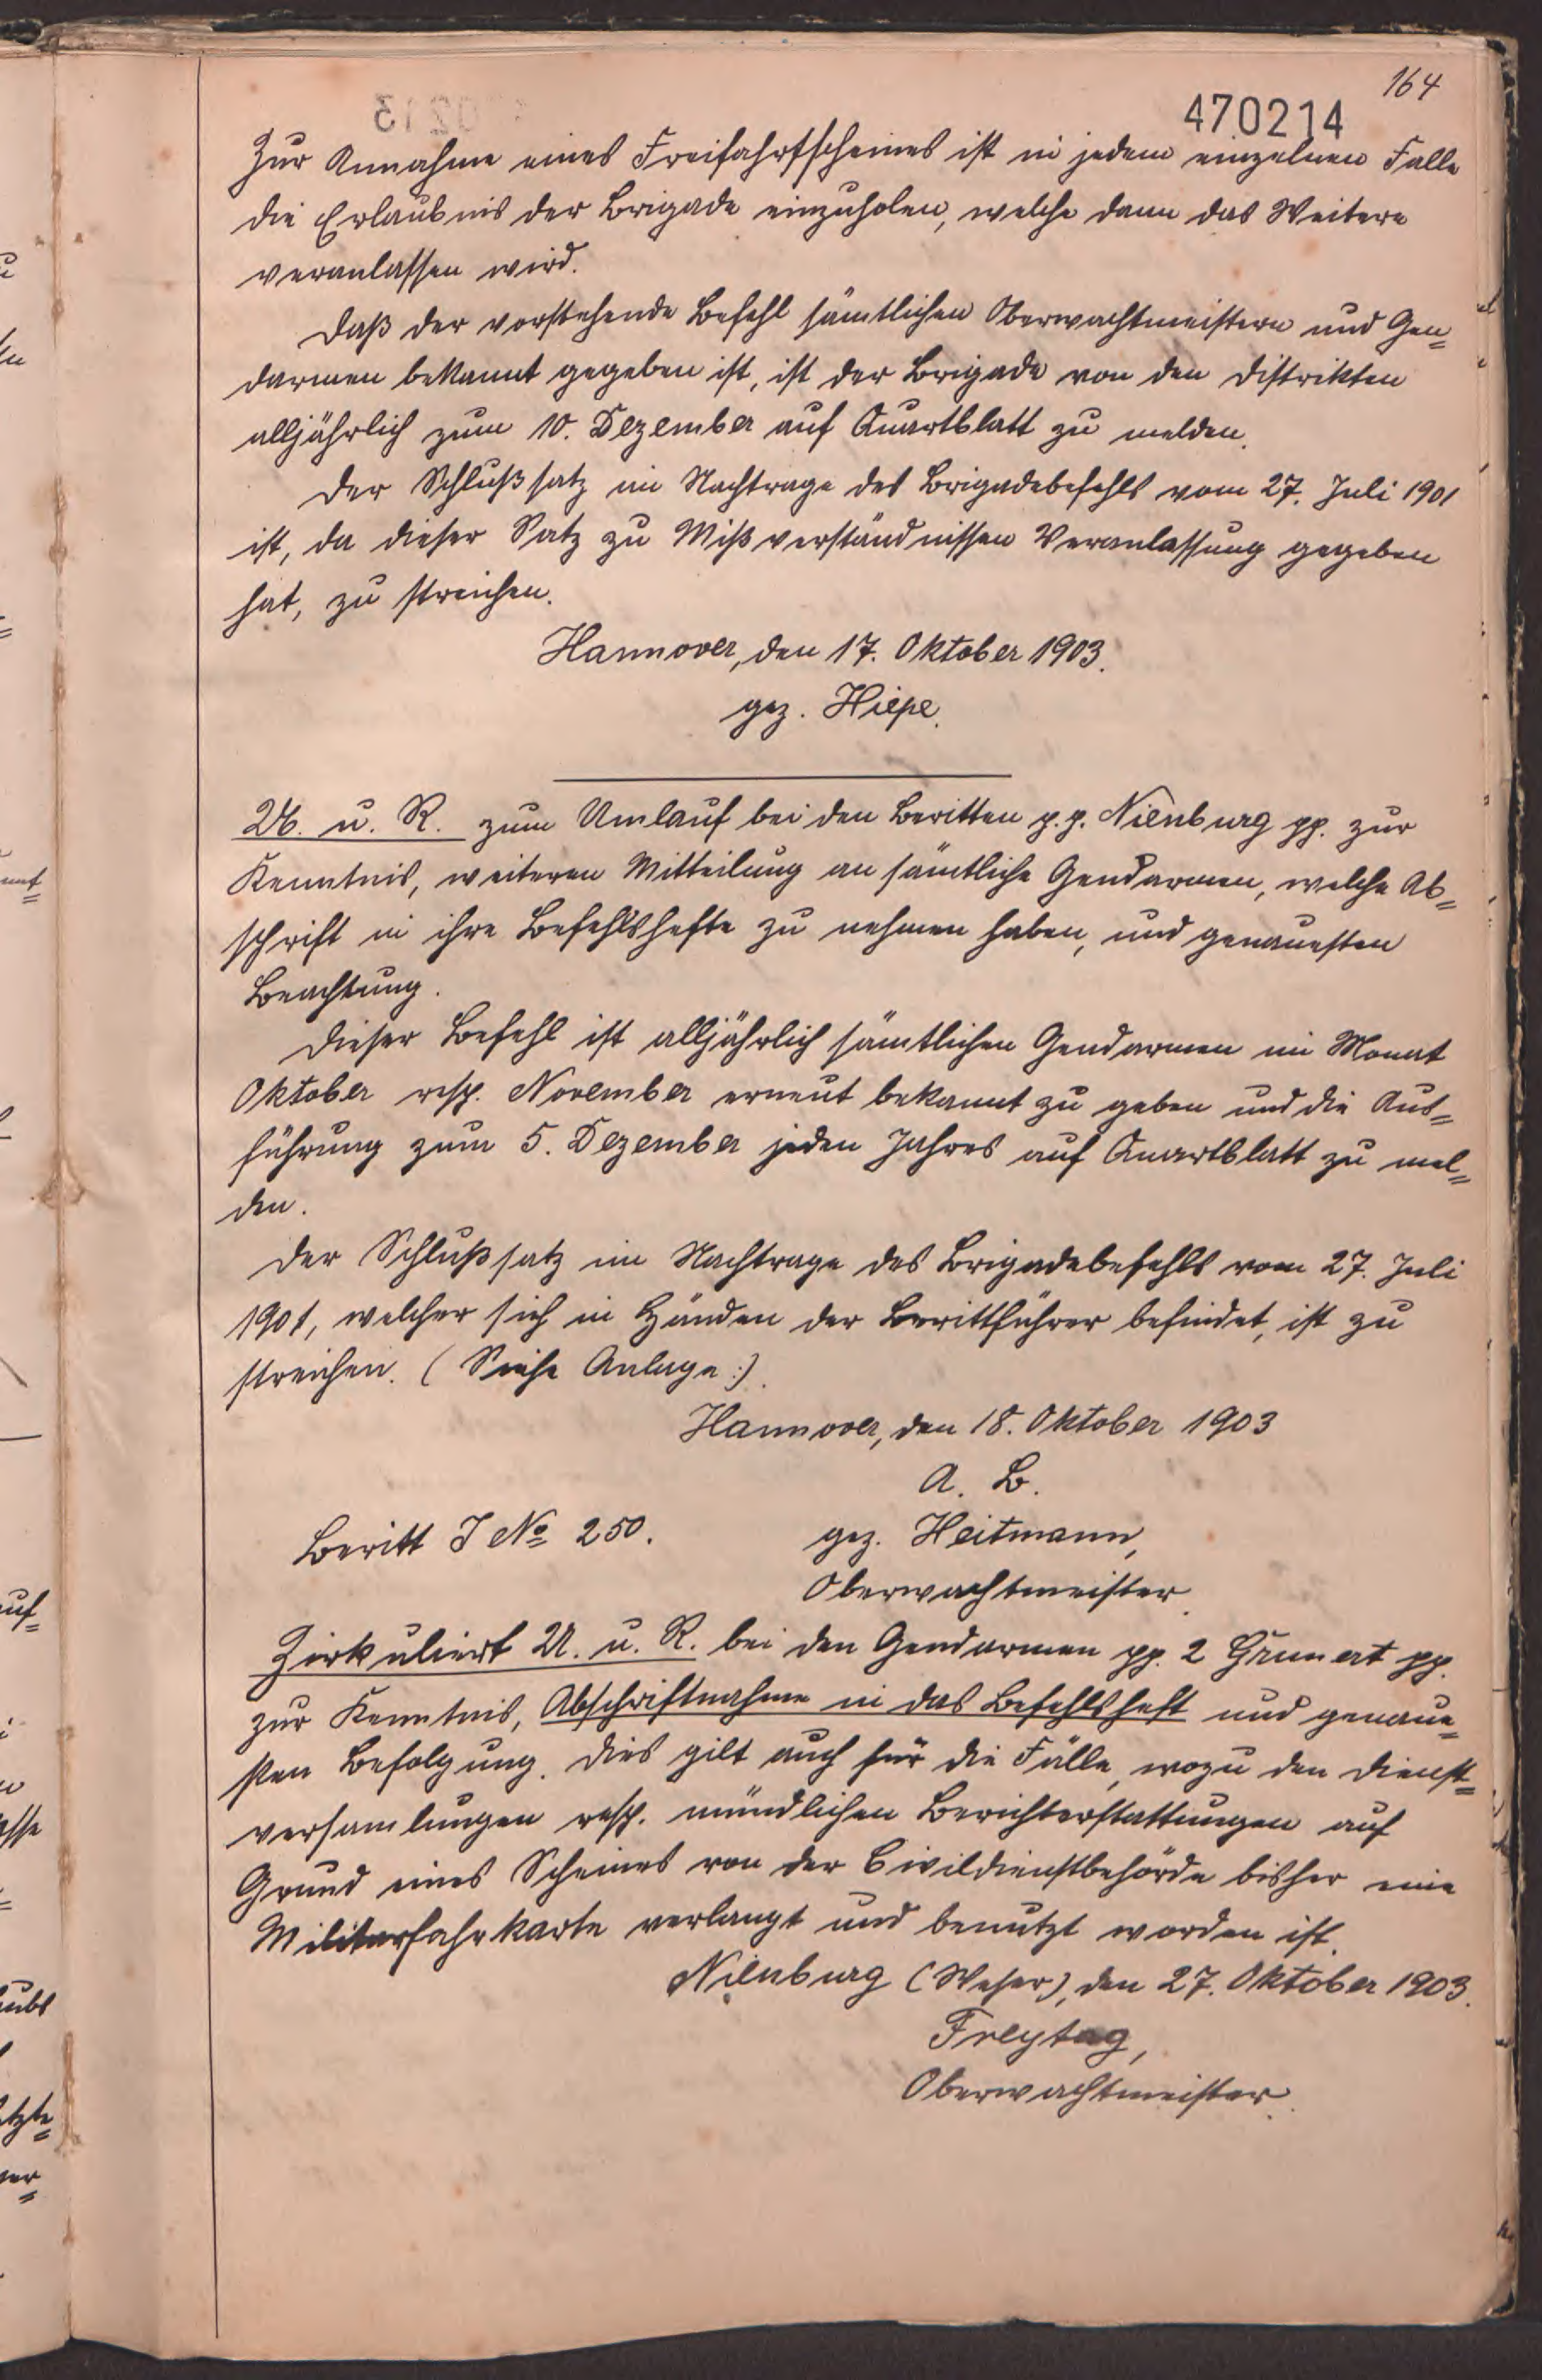 164
470214
Zur Annahme eines Freifahrtscheines ist in jedem einzelnen Falle
die Erlaubnis der Brigade einzuholen, welche dann das Weitere
veranlassen wird.
Daß der vorstehende Befehl sämtlichen Oberwachtmeistern und Gen=
darmen bekannt gegeben ist, ist der Brigade von den Distrikten
alljährlich zum 10. Dezember auf Quartblatt zu melden.
Der Schlußsatz im Nachtrage des Brigadebefehls vom 27. Juli 1901
ist, da dieser Satz zu Mißverständnissen Veranlassung gegeben
hat, zu streichen.
Hannover, den 17. Oktober 1903.
gez. Hiepe.
U. u. R. zum Umlauf bei den Beritten p.p. Nienburg pp. zur
Kenntnis, weiteren Mitteilung an sämtliche Gendarmen, welche Ab=
schrift in ihre Befehlshefte zu nehmen haben, und genauesten
Beachtung.
Dieser Befehl ist alljährlich sämtlichen Gendarmen im Monat
Oktober resp. November erneut bekannt zu geben und die Aus=
führung zum 5. Dezember jeden Jahres auf Quartblatt zu mel=
den.
Der Schlußsatz im Nachtrage des Brigadebefehls vom 27. Juli
1901, welcher sich in Händen der Berittführer befindet, ist zu
streichen. (Siehe Anlage:).
Hannover, den 18. Oktober 1903
A. B.
Beritt J No 250.
gez. Heitmann,
Oberwachtmeister.
Zirkuliert U. u. R. bei den Gendarmen pp. 2 Grunert pp.
zur Kenntnis, Abschriftnahme in das Befehlsheft und genaue=
sten Befolgung. Dies gilt auch für die Fälle, wozu den Dienst=
versamlungen resp. mündlichen Berichterstattungen auf
Grund eines Scheines von der Civildienstbehörde bisher eine
Militärfahrkarte verlangt und benutzt worden ist.
Nienburg (Weser), den 27. Oktober 1903.
Freytag,
Oberwachtmeister.